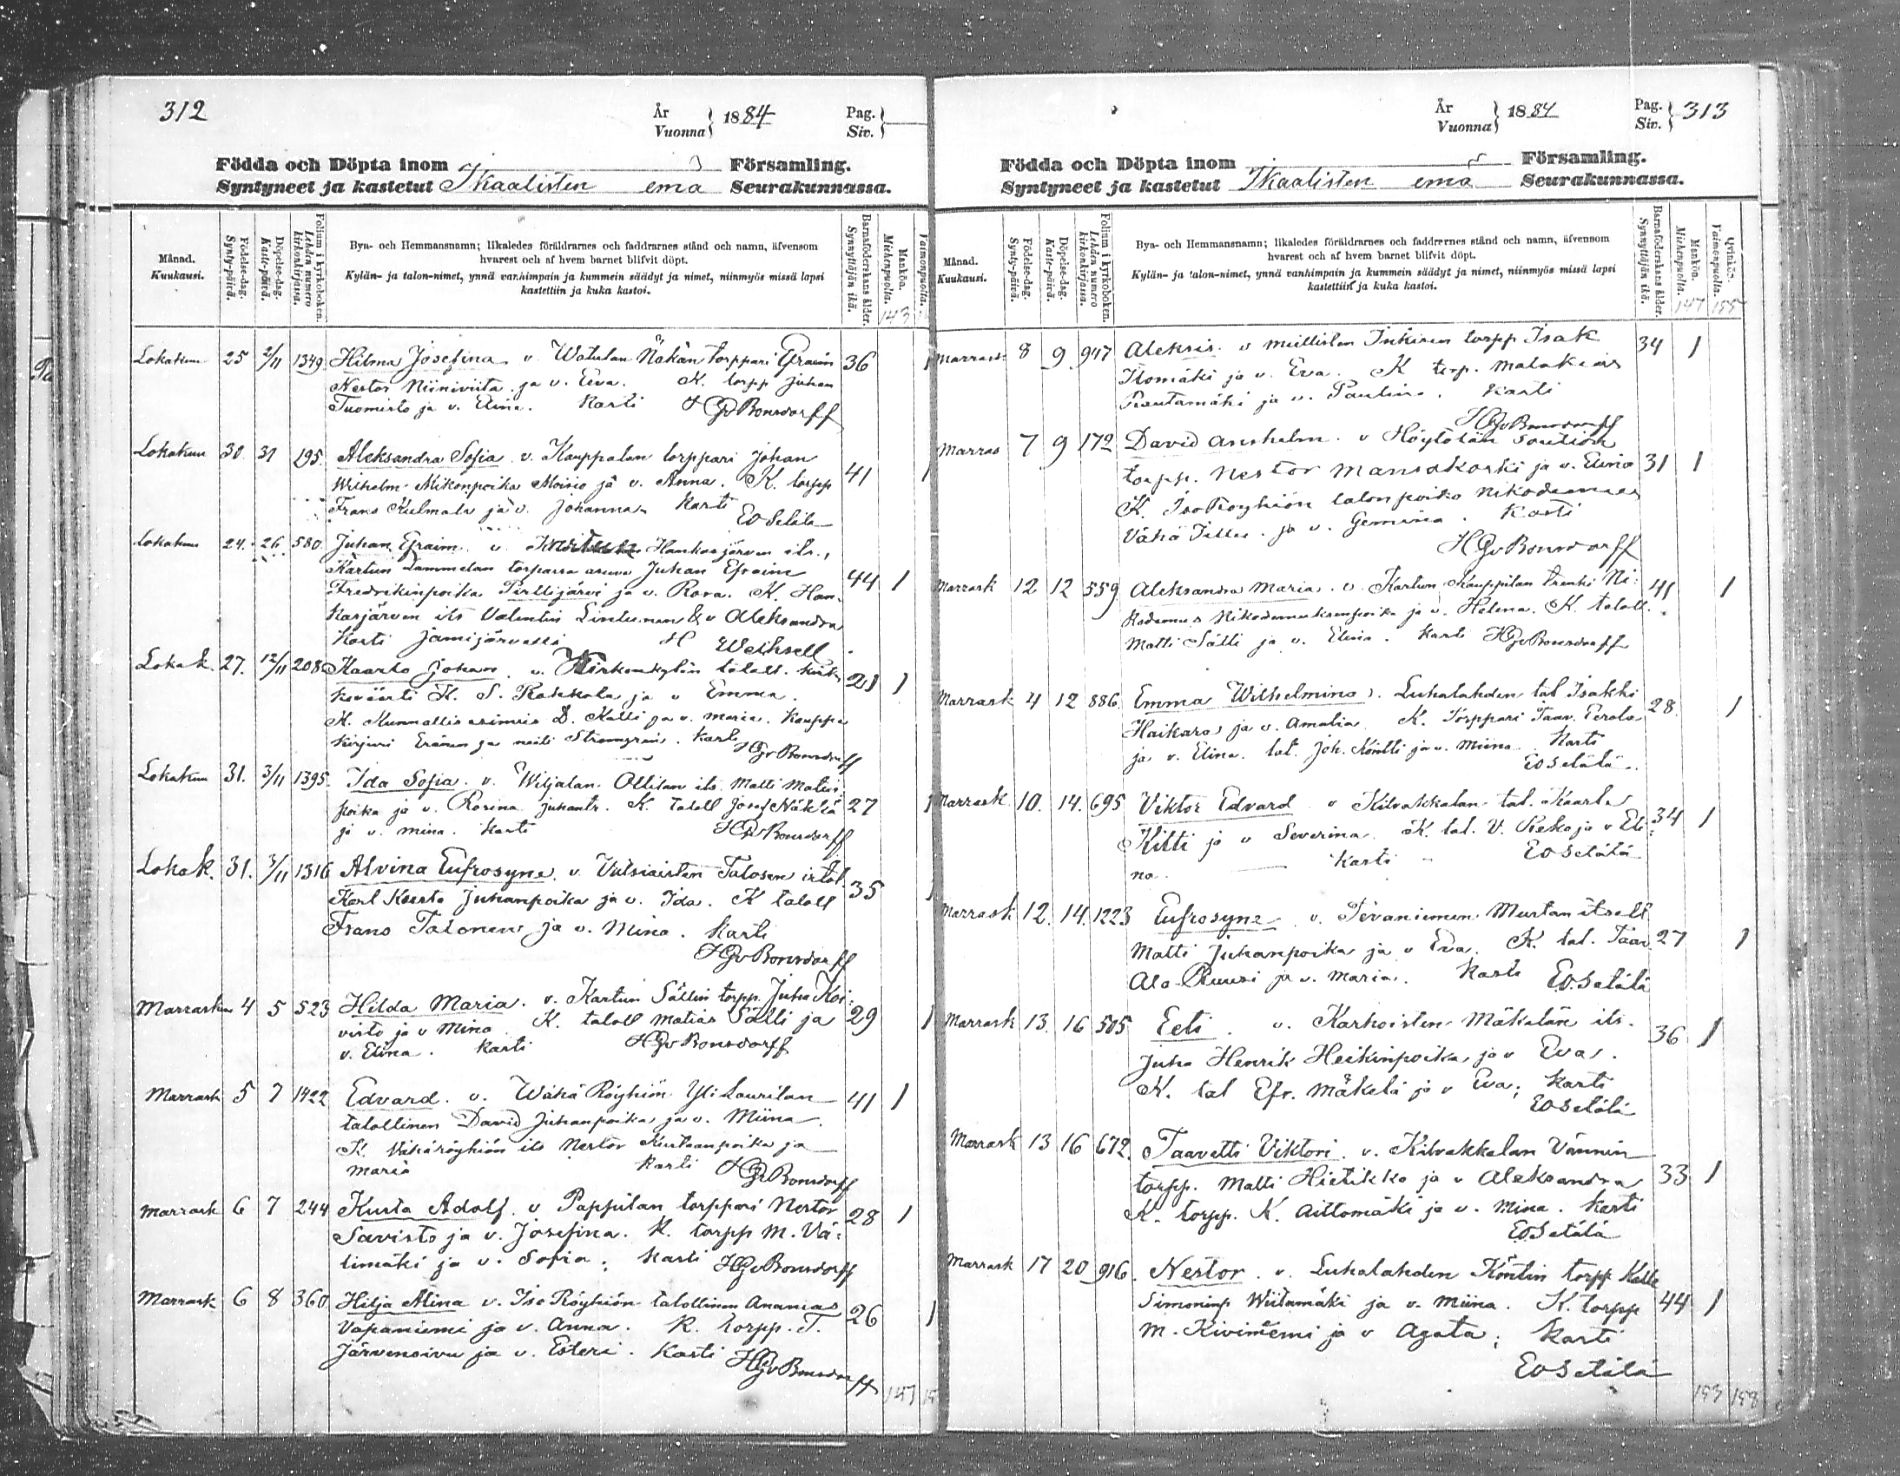 312
År
Vuonna } 1884
Pag.
Siv. }
Födda och Döpta inom Församling.
Syntyneet ja kastetut Ikaalisten emä Seurakunnassa.
Månad.
Kuukausi.
Födelse-dag.
Synty-päivä.
Döpelse-dag.
Kaste-päivä.
Folium i kyrkoboken.
Lehden numero kirkonkirjassa.
Bya- och Hemmansnamn; likaledes föräldrarnes och faddrarnes stånd och namn, äfvensom
hvarest och af hvem barnet blifvit döpt.
Kylän- ja talon-nimet, ynnä vanhimpain ja kummein säädyt ja nimet, niinmyös missä lapsi
kastettiin ja kuka kastoi.
Barnaföderskans ålder.
Synnyttäjän ikä.
Mankön.
Miehenpuolta.
Vaimonpuolta.
143
Lokakuu 25 2/11 1349 Hilma Josefina v. Watulan Näkän torppari Efraim 36 1
Nestor Niiniviita ja v. Eva. K. torpp Juhan
Tuomisto ja v. Elina. Kasti HGvBonsdorff
Lokakuu 30 31 195 Aleksandra Sofia v. Kauppalan torppari Johan 41 1
Wilhelm Mikonpoika Moisio ja v. Anna. K. torpp
Frans Kulmala ja v. Johanna. Kasti EOSetälä
Lokakuu 24. 26 580 Juhan Efraim v. Hankasjärven its.,
Kartun Lammelan torpassa asuva Juhan Efraim 44 1
Fredrikinpoika Pirttijärvi ja v. Rosa. K. Han-
kasjärven its Valentin Lintunen & v Aleksandra
Kasti Jämijärvellä H Weihsell.
Lokak. 27. 12/11 208 Kaarlo Johan v. Kirkonkylän talall. 21 1
K. S. Rahkola ja v Emma.
K. Kunnallis esimies D. Kalli ja v. Maria. Kauppa
kirjuri Eränen ja neiti Strömgren. Kasti HGvBonsdorff
Lokakuu 31. 3/11 1395. Ida Sofia v. Wiljalan Ollilan its Matti Matin- 27 1
poika ja v. Rosina Juhantr. K. talall Josef Näkkilä
ja v. Mina. Kasti HGvBonsdorff
Lokak. 31. 3/11 1316 Alvina Eufrosyne v. Vatsiaisten Talosen istal. 35
Karl Kaarlo Juhanpoika ja v. Ida. K talall
Frans Talonen ja v. Mina. Kasti
HGvBonsdorff
Marraskuu 4 5 523 Hilda Maria. v. Kartun Sällin torpp. Juha Koi- 29 1
visto ja v Mina. K. talall Matias Sälli ja
v. Elina. Kasti HGvBonsdorff
Marrask 5 7 1422 Edvard. v. Wähä Röyhiön Yli Laurilan 41 1
talollinen David Juhanpoika ja v. Miina.
K. Vähäröyhiön its Nestor Kustaanpoika ja
Maria Kasti HGvBonsdorff
Marrask 6 7 244 Kusta Adolf v Pappilan torppari Nestor 28 1
Savisto ja v. Josefina. K. torpp M. Vä-
limäki ja v. Sofia. Kasti HGvBonsdorff
Marrask 6 8 360 Hilja Mina v. Iso Röyhiön talollinen Ananias 26 1
Vapaniemi ja v. Anna. K. torpp. T.
Järvensivu ja v. Esteri. Kasti HGvBonsdorff
147
År
Vuonna } 1884
Pag.
Siv. } 313
Födda och Döpta inom Församling.
Syntyneet ja kastetut Ikaalisten emä Seurakunnassa.
Månad.
Kuukausi.
Födelse-dag.
Synty-päivä.
Döpelse-dag.
Kaste-päivä.
Folium i kyrkoboken.
Lehden numero kirkonkirjassa.
Bya- och Hemmansnamn; likaledes föräldrarnes och faddrarnes stånd och namn, äfvensom
hvarest och af hvem barnet blifvit döpt.
Kylän- ja talon-nimet, ynnä vanhimpain ja kummein säädyt ja nimet, niinmyös missä lapsi
kastettiin ja kuka kastoi.
Barnaföderskans ålder.
Synnyttäjän ikä.
Mankön.
Miehenpuolta.
Qvinkön.
Vaimonpuolta.
147 155
Marrask 8 9 947 Aleksis v Miettisen Inkisen torpp Isak 34 1
Ilomäki ja v. Eva. K torp. Malakias
Rautamäki ja v. Paulina. Kasti
HGvBonsdorff
Marras 7 9 172 David Anshelm v Höytölän Soution
torpp. Nestor Mansakoski ja v. Elina 31 1
K. Iso Röyhiön talonpoika Nikodemus
Vähä Tillu ja v. Gemina. Kasti
HGvBonsdorff
Marrask 12 12 559 Aleksandra Maria. v. Kartun Kauppilan trenki Ni- 41 1
kodemus Nikodemuksenpoika ja v. Helena. K. talall.
Matti Sälli ja v. Elina. Kasti HGvBonsdorff
Marrask 4 12 886 Emma Wilhelmina v. Luhalahden tal Isakki 28. 1
Haikara ja v. Amalia K. Torppari Taav. Perola
ja v. Elina. tal. Joh. Köntti ja v. Miina. Kasti
EOSetälä.
Marrask 10. 14. 695 Viktor Edvard v Kilvakkalan tal. Kaarle 34 1
Kitti ja v Severina. K. tal. V. Reko ja v Eli-
na. Kasti EOSetälä
Marrask 12. 14. 1223 Eufrosyne v. Tevaniemen Murtan itsell 27 1
Matti Juhanpoika ja v Eva. K. tal. Taav
Ala-Ruusi ja v. Maria. Kasti EOSetälä
Marrask 13. 16 505 Eeli. v. Karhoisten Mäkelän its. 36 1
Juha Henrik Heikinpoika, ja v Eva.
K. tal Efr. Mäkelä ja v Eva; Kasti
EOSetälä
Marrask 13 16 672. Taavetti Viktori. v. Kilvakkalan Vännin
torpp. Matti Hietikko ja v Aleksandra 33 1
K. torpp. K. Aittomäki ja v. Mina. Kasti
EOSetälä
Marrask 17 20 916. Nestor. v. Luhalahden Köntin torpp Kalle
Simoninp Wiitamäki ja v. Miina. K. torpp 44 1
M. Kiviniemi ja v Agata; Kasti
EOSetälä
153 158